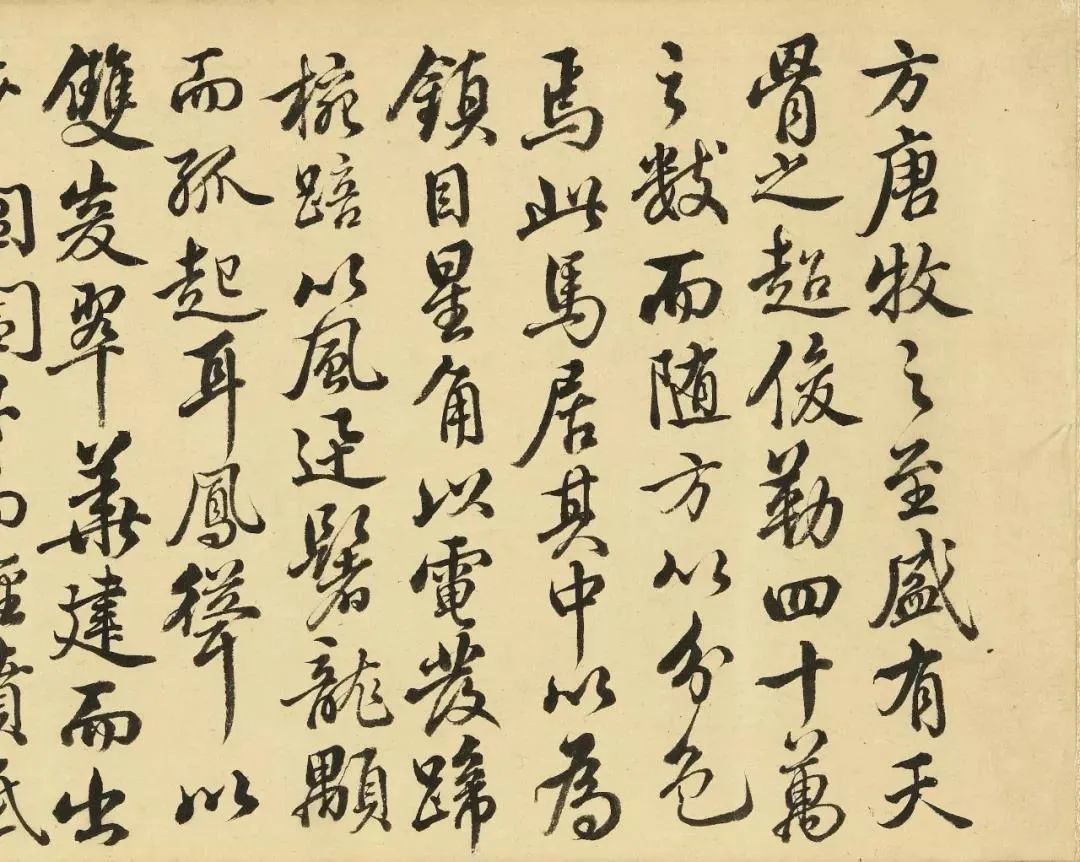 方唐牧之至盛有天
骨之超俊勒四十萬
之數而随方以分色
焉此馬居其中以為
鎮目星角以電發蹄
椀踣以風迅鬐龍顒
而孤起耳鳳聳以
雙翠華建而出
閶闔